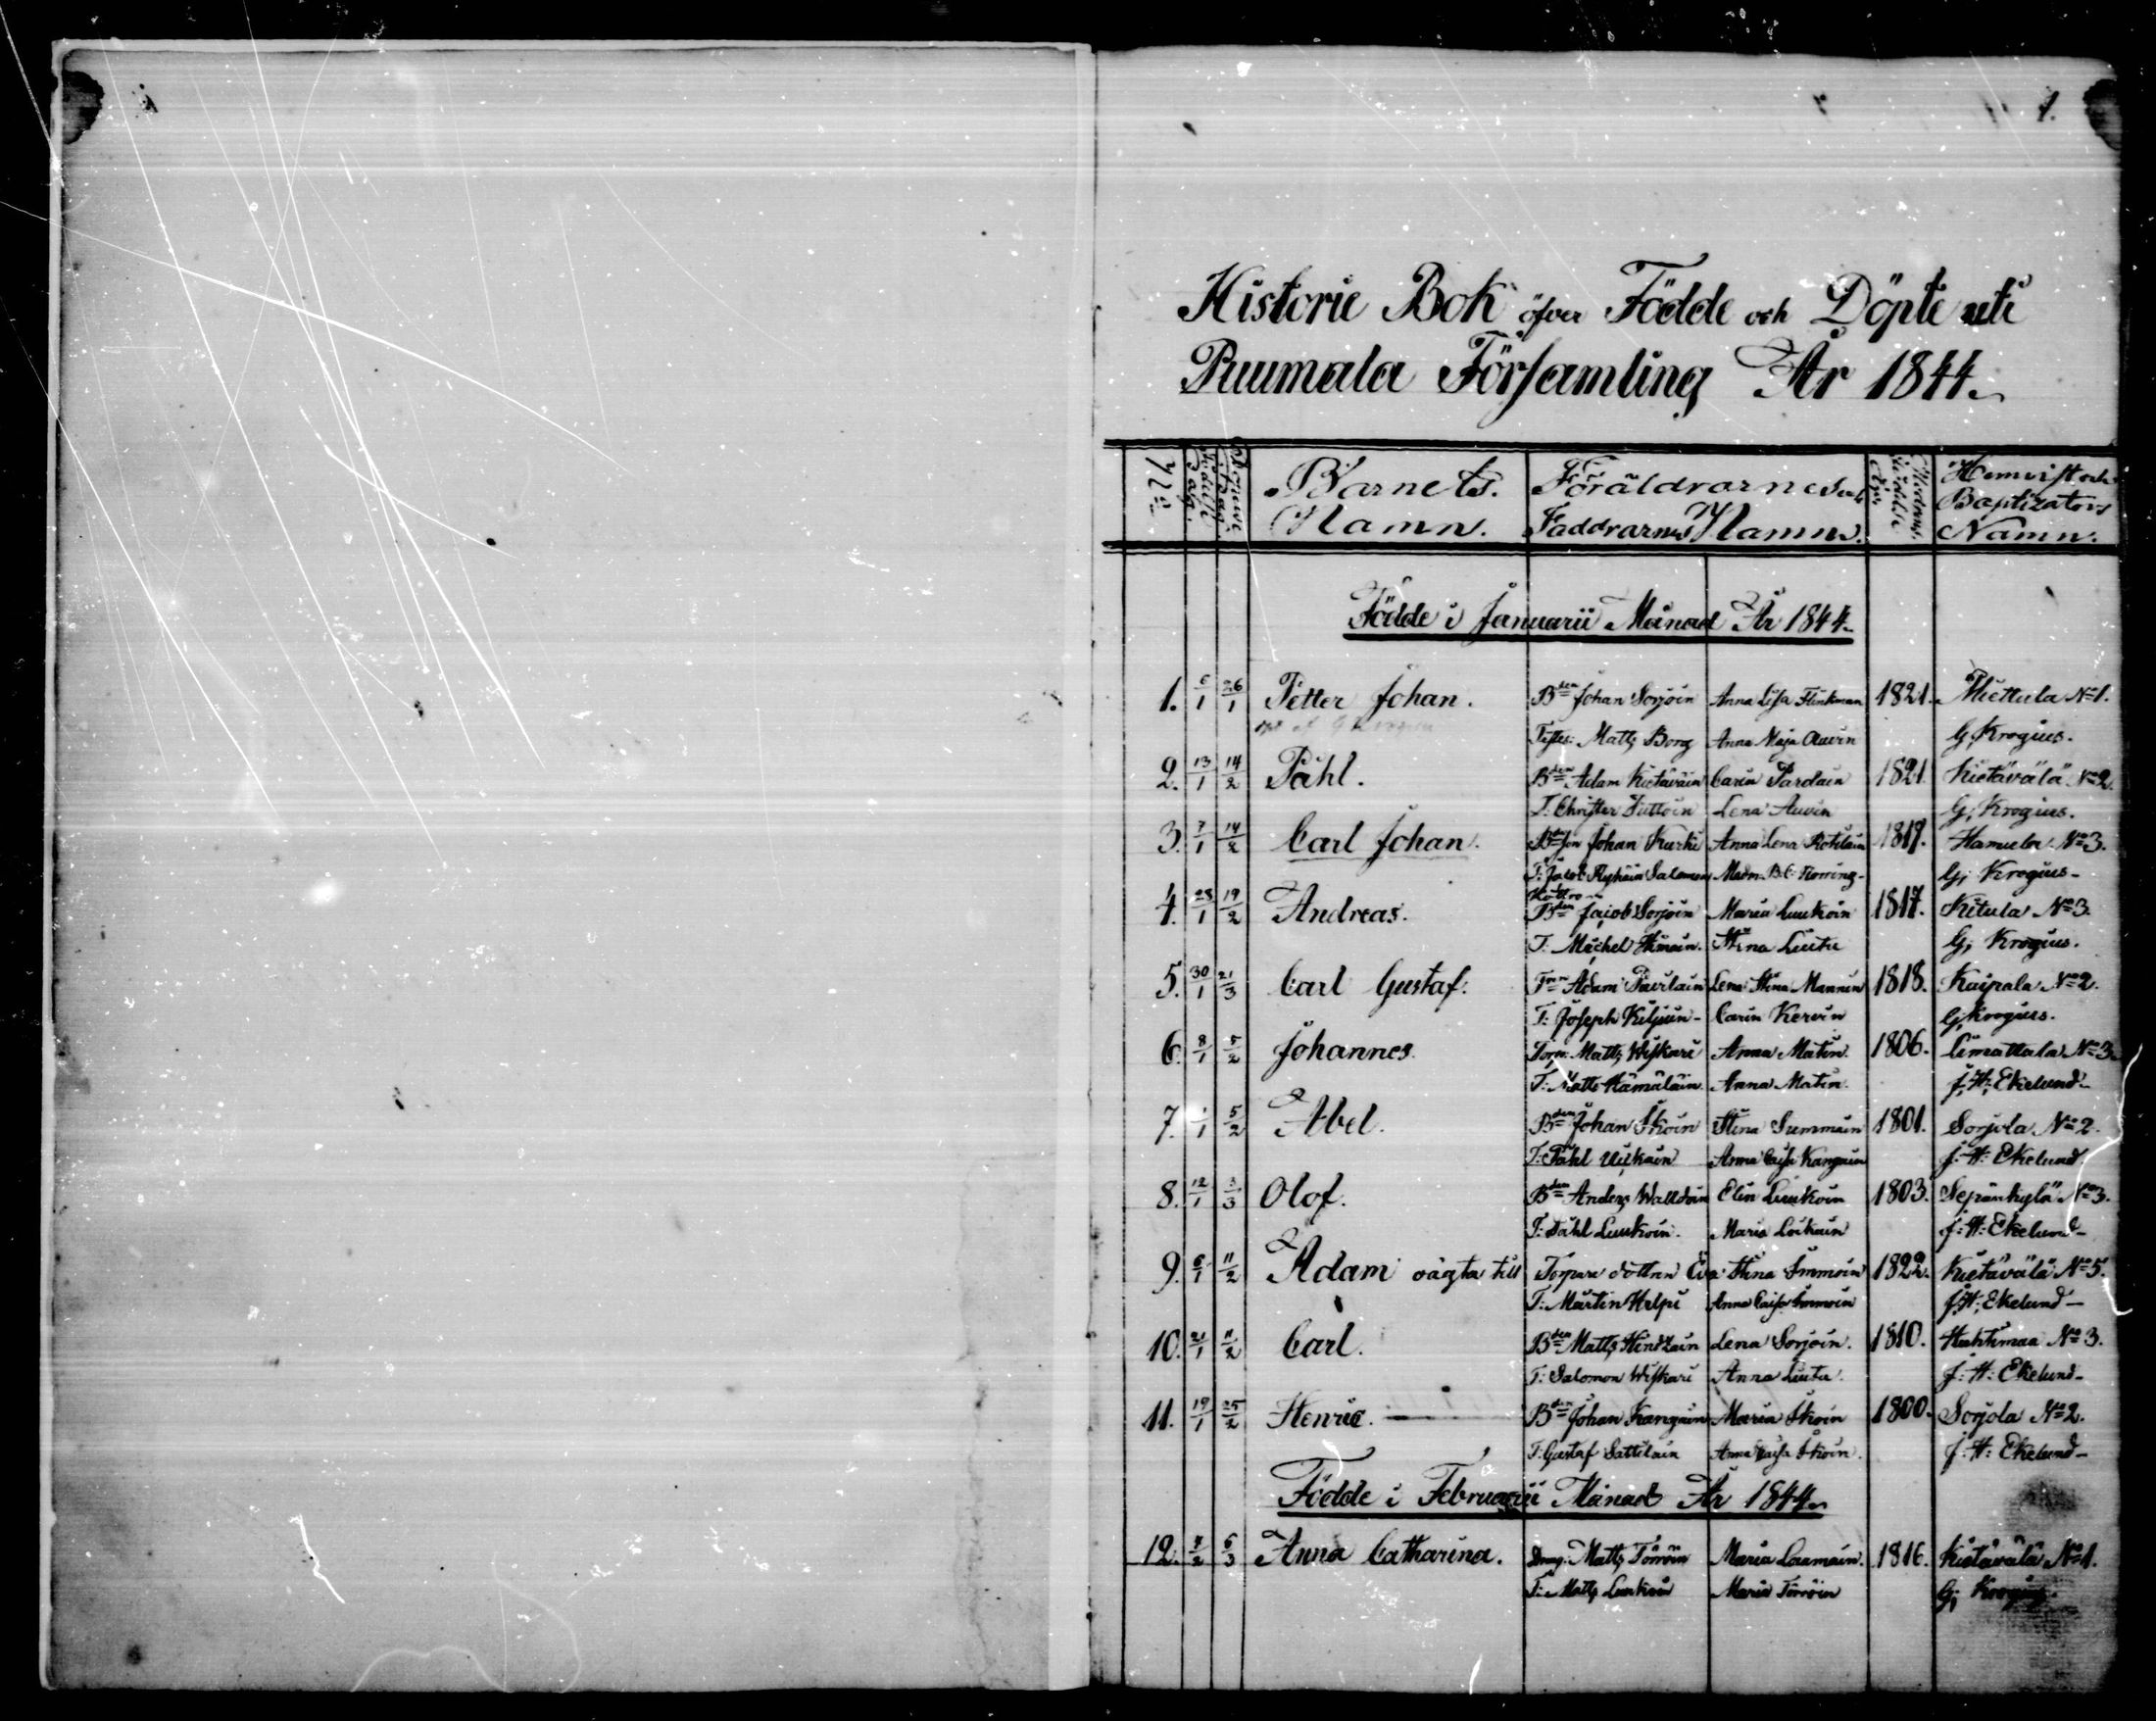 1.
Historie Bok öfver Födde och Döpte uti
Puumala Församling År 1844.
No
Barnets. Namn.
Föräldrarnes och Faddrarnes Namn.
Hemvist och Baptizators Namn.
Födde i Januarii Månad År 1844.
1. 6/1 26/1 Petter Johan. Bden Johan Sorjoin Anna Lisa Flinkman 1821. Miettula No 1.
Testes: Matts Borg Anna Maja Auvin G; Krogius.
2. 13/1 14/2 Påhl. Bden Adam Kietäväin Carin Pardain 1821. Kietävälä No 2.
T: Christer Tuttoin Lena Auvin G; Krogius.
3. 7/1 14/2 Carl Johan. Johan Kurki Anna Lena 1819. Hamula No 3.
T: Jacob Salomon B.C. Norring G; Krogius
4. 23/1 19/2 Andreas. Bden Jacob Sorjoin Maria Luukoin 1817. Kitula No 3.
T: Michel Stina Liuta G; Krogius.
5. 30/1 21/3 Carl Gustaf. Adam Pavilain Lena Stina Mannin 1818. Kaipala No 2.
T: Joseph Kiljuin Carin Kervin G; Krogius.
6. 8/1 5/2 Johannes. Torp: Matts Wiskari Anna Matin. 1806. Liimattala No 3.
T: Matts Hämäläin Anna Matin. J: H: Ekelund
7. 1/1 5/2 Abel. Bden Johan Ikoin Stina Summain 1801. Sorjola No 2.
T: Påhl Anna Caisa Kangain J: H: Ekelund
8. 12/1 3/3 Olof. Bden Anders Walldoin Elin Luukoin 1803. Sepänkylä No 3.
T: Påhl Luukoin. Maria Loikain J: H: Ekelund
9. 6/1 11/2 Adam oägta till Torpare dottren Eva Stina Immoin 1822. Kietävälä No 5.
T: Mårtin Helpi Anna Caisa Immoin J: H: Ekelund
10. 21/1 11/2 Carl. Bden Matts Hintzain Lena Sorjoin. 1810. Huhtimaa No 3.
T: Salomon Wiskari Anna Liuta. J: H: Ekelund
11. 19/1 25/2 Henric. Bden Johan Kangain Maria Ikoin 1800. Sorjola No 2.
T: Gustaf Sattilain Anna Caisa Ikoin. J: H: Ekelund
Födde i Februarii Månad År 1844.
12. 7/2 6/3 Anna Catharina. Dräng: Matts Törröin Maria Laamain. 1816. Kietävälä No 1.
T: Matts Luukoin Maria Törröin G; Krogius.